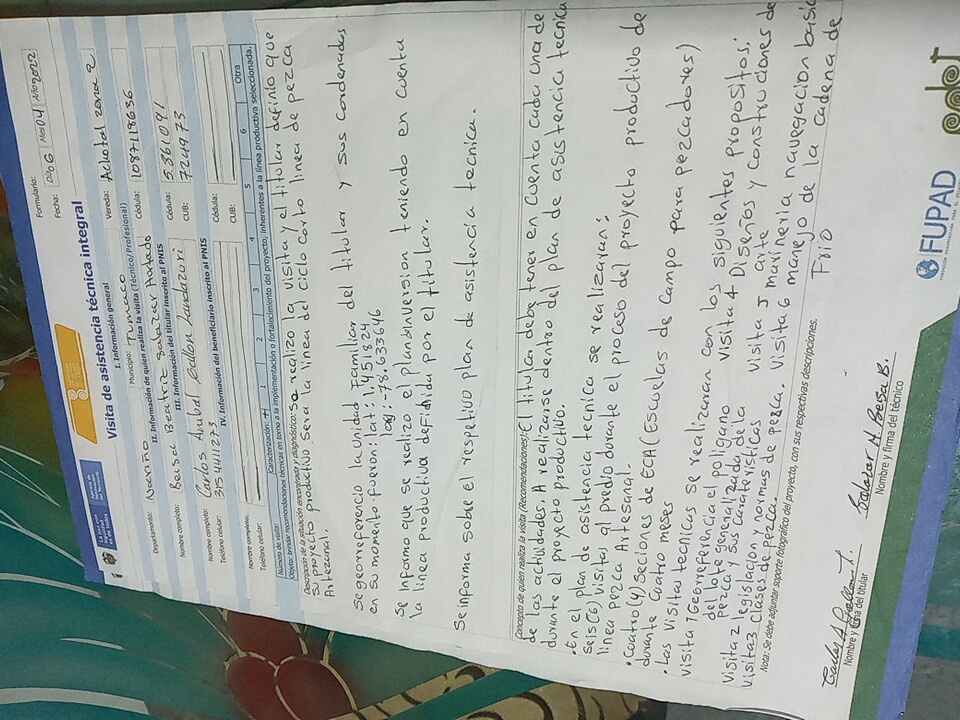 Formulario:
Fecha: Día 06 Mes 04 Año 2022
Visita de asistencia técnica integral
I. Información general
Departamento: Nariño Municipio: Tumaco Vereda: Achotal zona 2
II. Información de quien realiza la visita (Técnico/Profesional)
Nombre completo: Salazar Hurtado Cédula: 1087118636
III. Información del titular inscrito al PNIS
Nombre completo: Carlos Anibal Landazuri Cédula: 5.361091
Teléfono celular: 3154411273 CUB: 724973
IV. Información del beneficiario inscrito al PNIS
Nombre completo: Cédula:
Teléfono celular: CUB:
Número de visita: Caracterización: 1 2 3 4 5 6 Otra
Objeto: brindar recomendaciones técnicas en torno a la implementación o fortalecimiento del proyecto, inherentes a la línea productiva seleccionada.
Descripción de la situación encontrada y diagnóstico: se realizo la visita y el titular definio que
su proyecto productivo sera la linea del ciclo corto linea de pezca
Artezanal.
Se georreferencio la unidad Familiar del titular y sus cordenadas
en su momento fueron: lat: 1,451824
long: -78.633646
Se informo que se realizo el plan de inversion teniendo en cuenta
la linea productiva definida por el titular.
Se informa sobre el respetivo plan de asistencia tecnica.
Concepto de quien realiza la visita (Recomendaciones): El titular debe tener en cuenta cada una de
de las actividades A realizarse dentro del plan de asistencia tecnica
durante el proyecto productivo.
• En el plan de asistencia tecnica se realizaran:
seis (6) visitas al predio durante el proceso del proyecto productivo de
linea pezca Artesenal.
• Cuatro (4) Secciones de ECA (Escuelas de Campo para pezcadores)
durante cuatro meses
• Las Visitas tecnicas se realizaran con los siguientes propositos:
visita 1 Georreferencia el poligano visita 4 Diseños y construciones de
pezca y sus carateristicas arte
visita 2 legislacion y normas de pesca. visita 5 maxineria navegacion basic
visita 3 clases de pezca. visita 6 manejo de la cadena de
Frio
Nota: Se debe adjuntar soporte fotográfico del proyecto, con sus respectivas descripciones.
Nombre y firma del titular
Nombre y firma del técnico
FUPAD
pdet